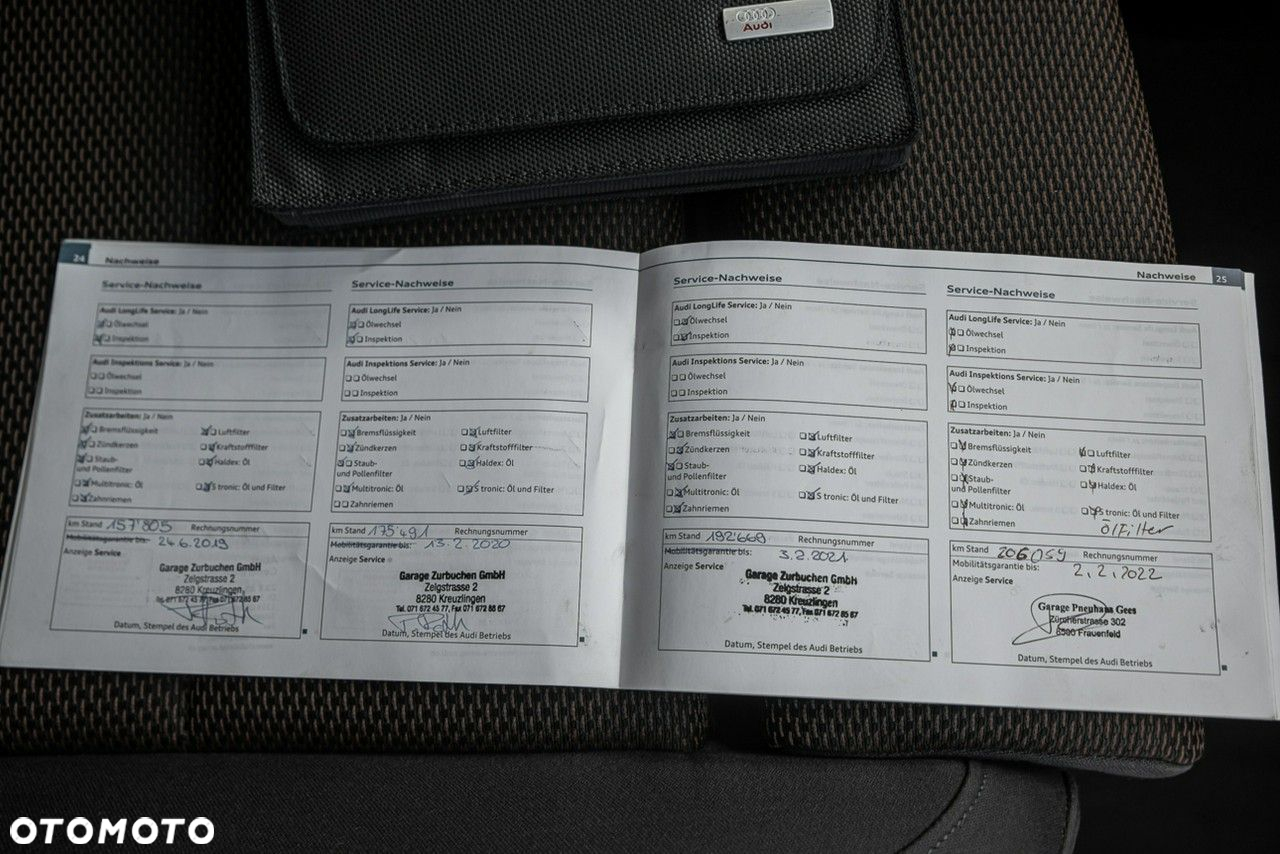 Audi
24 Nachweise
Service-Nachweise
Audi LongLife Service: Ja / Nein
Ölwechsel
Inspektion
Audi Inspektions Service: Ja / Nein
Ölwechsel
Inspektion
Zusatzarbeiten: Ja / Nein
Bremsflüssigkeit Luftfilter
Zündkerzen Kraftstofffilter
Staub- Haldex: Öl
und Pollenfilter
Multitronic: Öl S tronic: Öl und Filter
Zahnriemen
km Stand 157'805 Rechnungsnummer
Mobilitätsgarantie bis: 24.6.2019
Anzeige Service
Garage Zurbuchen GmbH
Zelgstrasse 2
8280 Kreuzlingen
Datum, Stempel des Audi Betriebs
Service-Nachweise
Audi LongLife Service: Ja / Nein
Ölwechsel
Inspektion
Audi Inspektions Service: Ja / Nein
Ölwechsel
Inspektion
Zusatzarbeiten: Ja / Nein
Bremsflüssigkeit Luftfilter
Zündkerzen Kraftstofffilter
Staub- Haldex: Öl
und Pollenfilter
Multitronic: Öl S tronic: Öl und Filter
Zahnriemen
km Stand 175'491 Rechnungsnummer
Mobilitätsgarantie bis: 13.2.2020
Anzeige Service
Garage Zurbuchen GmbH
Zelgstrasse 2
8280 Kreuzlingen
Tel. 071 672 45 77, Fax 071 672 88 67
Datum, Stempel des Audi Betriebs
Nachweise 25
Service-Nachweise
Audi LongLife Service: Ja / Nein
Ölwechsel
Inspektion
Audi Inspektions Service: Ja / Nein
Ölwechsel
Inspektion
Zusatzarbeiten: Ja / Nein
Bremsflüssigkeit Luftfilter
Zündkerzen Kraftstofffilter
Staub- Haldex: Öl
und Pollenfilter
Multitronic: Öl S tronic: Öl und Filter
Zahnriemen
km Stand 192'669 Rechnungsnummer
Mobilitätsgarantie bis: 3.2.2021
Anzeige Service
Garage Zurbuchen GmbH
Zelgstrasse 2
8280 Kreuzlingen
Tel. 071 672 45 77, Fax 071 672 85 67
Datum, Stempel des Audi Betriebs
Service-Nachweise
Audi LongLife Service: Ja / Nein
Ölwechsel
Inspektion
Audi Inspektions Service: Ja / Nein
Ölwechsel
Inspektion
Zusatzarbeiten: Ja / Nein
Bremsflüssigkeit Luftfilter
Zündkerzen Kraftstofffilter
Staub- Haldex: Öl
und Pollenfilter
Multitronic: Öl S tronic: Öl und Filter
Zahnriemen Ölfilter
km Stand 206059 Rechnungsnummer
Mobilitätsgarantie bis: 2.2.2022
Anzeige Service
Garage Pneuhaus Gees
Zürcherstrasse 302
8500 Frauenfeld
Datum, Stempel des Audi Betriebs
OTOMOTO